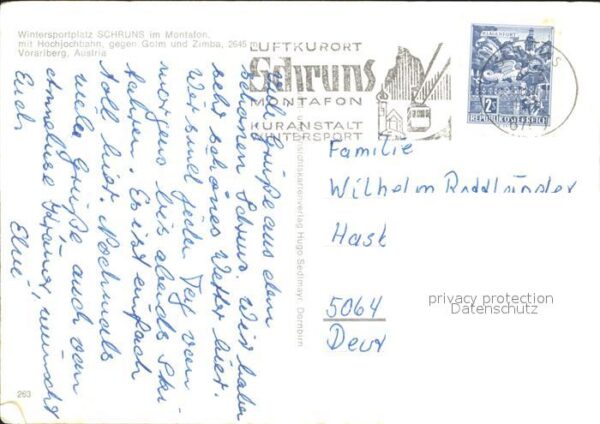 Wintersportplatz SCHRUNS im Montafon,
mit Hochjochbahn, gegen Golm und Zimba, 2645
Vorarlberg, Austria
LUFTKURORT
Schruns
MONTAFON
KURANSTALT
WINTERSPORT
KLAGENFURT
2
REPUBLIK ÖSTERREICH
Viele Grüße aus dem
schönen Schruns. Wir haben
sehr schönes Wetter hier.
Wir sind jeden Tag von
morgens bis abends Ski
fahren. Es ist einfach
toll hier. Nochmals
viele Grüße auch von
wünscht
Euch
Elne
Alpine Luftbild
Hugo Sedlmayr, Dornbirn
Familie
Wilhelm
Hast
5064
263
privacy protection
Datenschutz